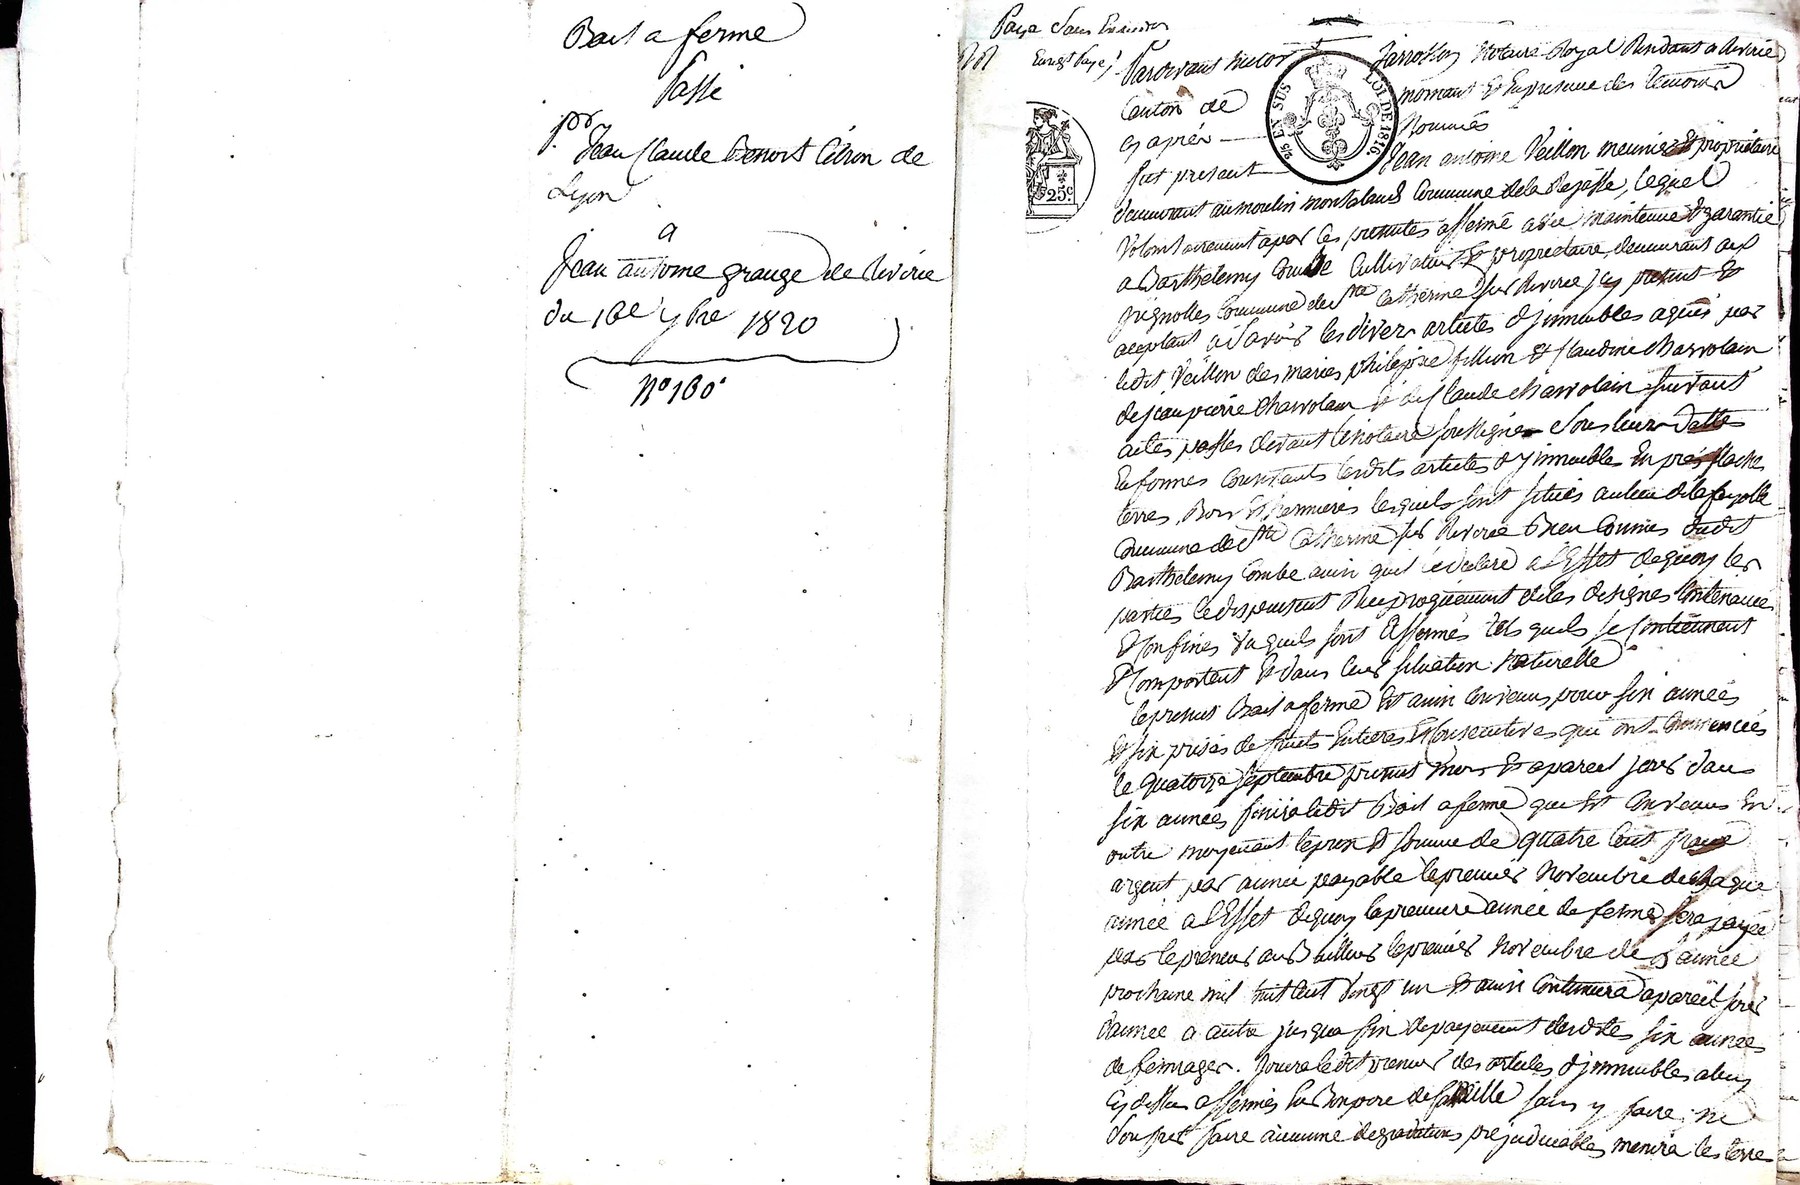 Bail a ferme
Passé
pr
Jean Claude Benoit Céron de
Lyon
a
Jean antoine grange de Riverie
du 16e 7bre 1820
No 160
Paye Sans
Pardevant Jarrosson Notaire Royal Residant a Riverie
Canton de mornant Et En presence des temoins
cy après Nommés
fut present Jean antoine Veillon meunier Et propriétaire
EN SUS LOI DE 1816
25c
demeurant au moulin montaland Commune de la Rajasse, lequel
Volontairement a par ces presentes affermé avec maintenue Et garantie
a Barthelemy Combe Cultivateur Et propriétaire, demeurant aux
pignolles Commune de Ste Catherine sur Riverie, icy present Et
aceptant a Savoir les divers articles d'immeubles aquis par
ledit Veillon des maries philippe fillion Et Claudine Charvolain
de jean pierre Charvolain Et de Claude Charvolain suivant
actes passes devant le Notaire soussigné Sous leurs dattes
En formes Constants lesdits articles d'immeubles En prés
terres, Bois Et hermieres lesquels sont situés au lieu de la fayolle
Commune de Ste Catherine sur Riverie Bien Connus dudit
Barthelemy Combe ainsi quil le declare a l'Effet dequoy les
parties se dispensent Reciproquement de les designer Contenances
Et Confines vu quils sont affermés tels quils se Contiennent
Et Comportent Et dans leur situation Naturelle
le present Bail a ferme Est ainsi Convenus pour six années
Et six prises de fruits Entieres Et Consecutives qui ont Commencées
le quatorze septembre present mois Et a pareil jour dans
six années finira ledit Bail a ferme que Est Convenus En
outre moyenant le prix Et somme de quatre Cent francs
argent par année payable le premier Novembre de chaque
année a l'Effet dequoy la premiere année de ferme sera payée
par le preneur au Bailleur le premier Novembre de l'année
prochaine mil huit Cent vingt un Et ainsi Continuera a pareil jour
d'année a autre jusqua fin de payement desdites six années
de fermages. Jouira ledit preneur des articles d'immeubles a luy
cy dessus affermés En Bon pere de famille sans y faire ni
souffrir faire aucune degradations prejudiciables menera les terres